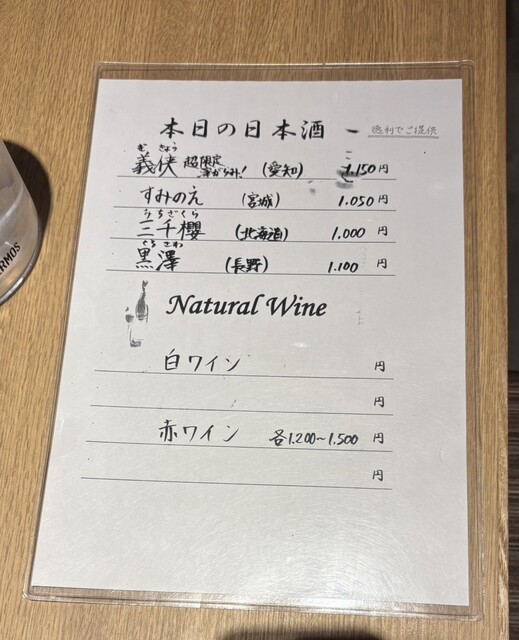 本日の日本酒 ー 徳利でご提供
ぎ きょう
義侠 超限定 澤がらみ! (愛知) 1.150円
すみのえ (宮城) 1.050円
みちざくら
三千櫻 (北海道) 1.000 円
くろさわ
黒澤 (長野) 1.100 円
Natural Wine
白ワイン 円
円
赤ワイン 各1.200~1.500 円
円
ERMOS